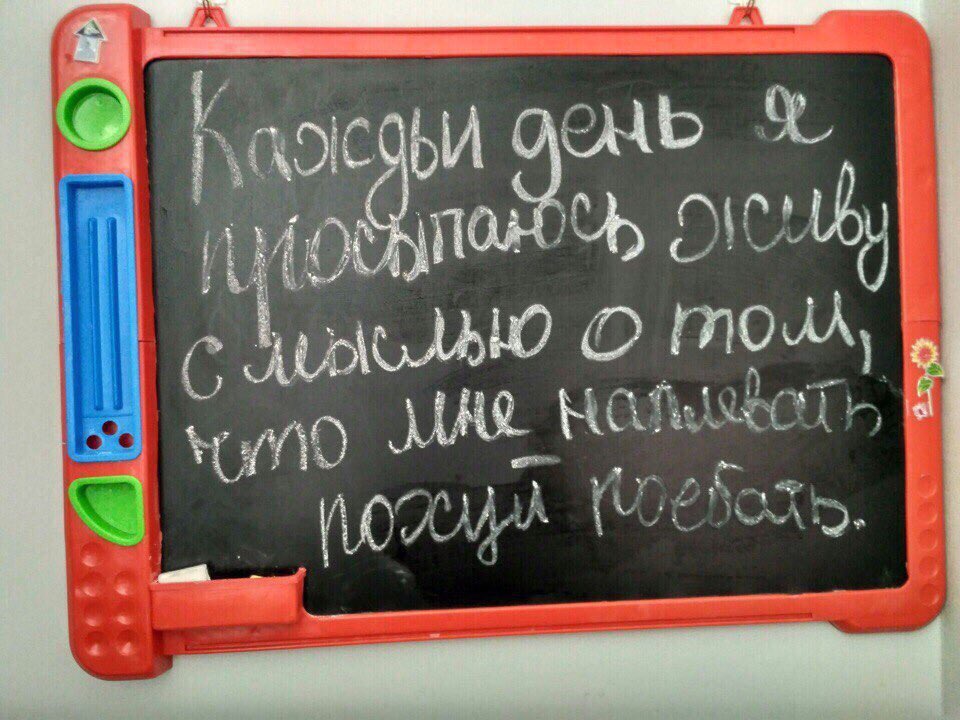 Кажды день я
просыпаюсь живу
с мыслью о том,
что мне наплевать
похуй поебать.